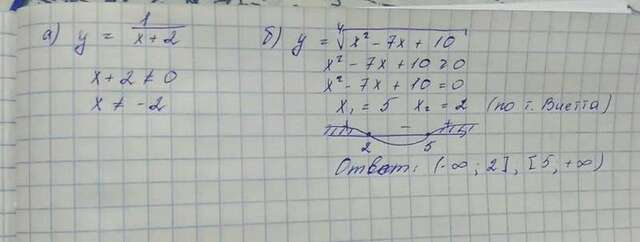 а) y = 1/(x + 2)
x + 2 ≠ 0
x ≠ -2
б) y = ∜(x² - 7x + 10)
x² - 7x + 10 ≥ 0
x² - 7x + 10 = 0
x₁ = 5 x₂ = 2 (по т. Виетта)
+ - +
2 5
Ответ: (-∞; 2], [5, +∞)